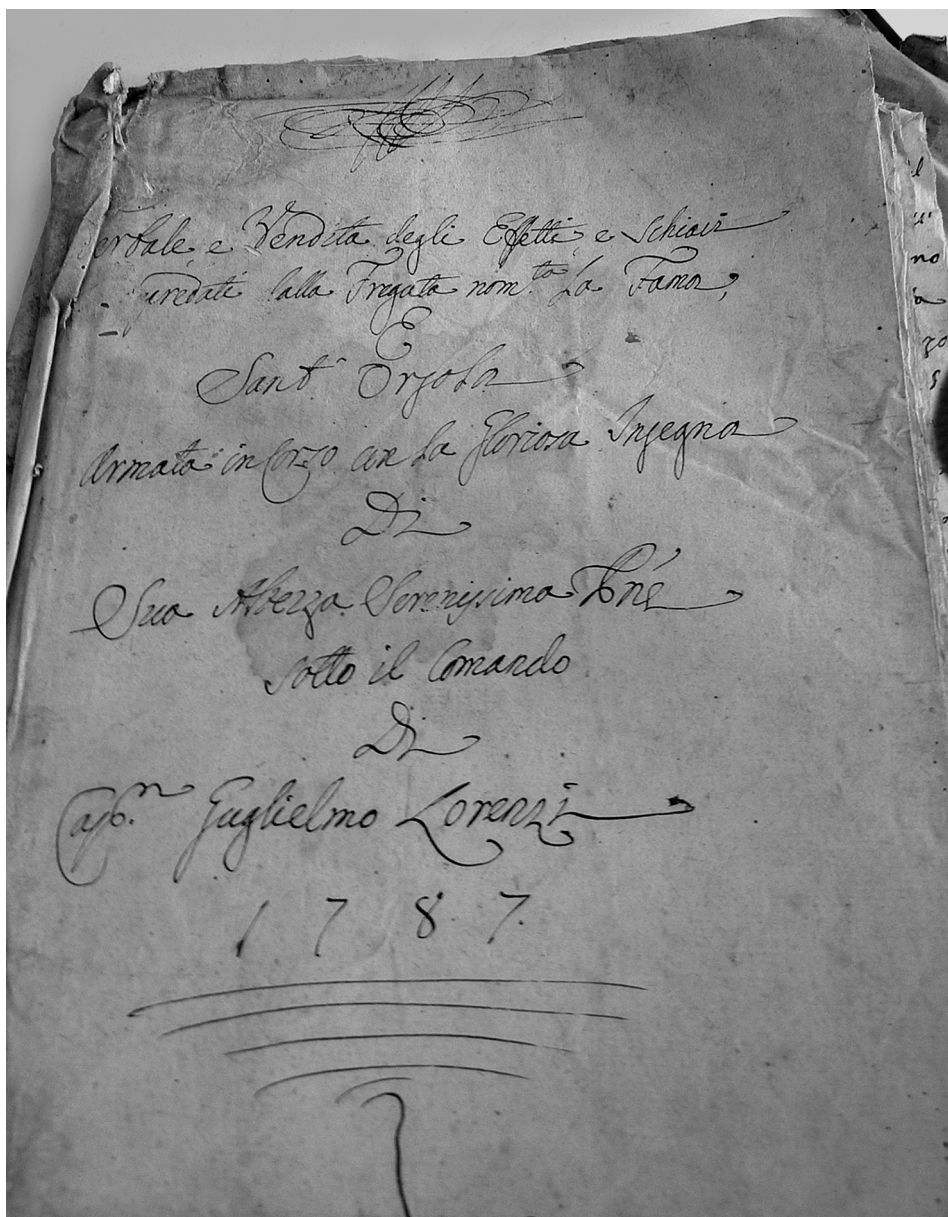 Verbale, e Vendita degli Effetti, e Schiavi
predati dalla Fregata nom.ta La Fama,
E
Sant' Orsola
Armata in Corso con la Gloriosa Insegna
Di
Sua Altezza Serenissima
sotto il Comando
Di
Cap.n Guglielmo Lorenzi
1787.